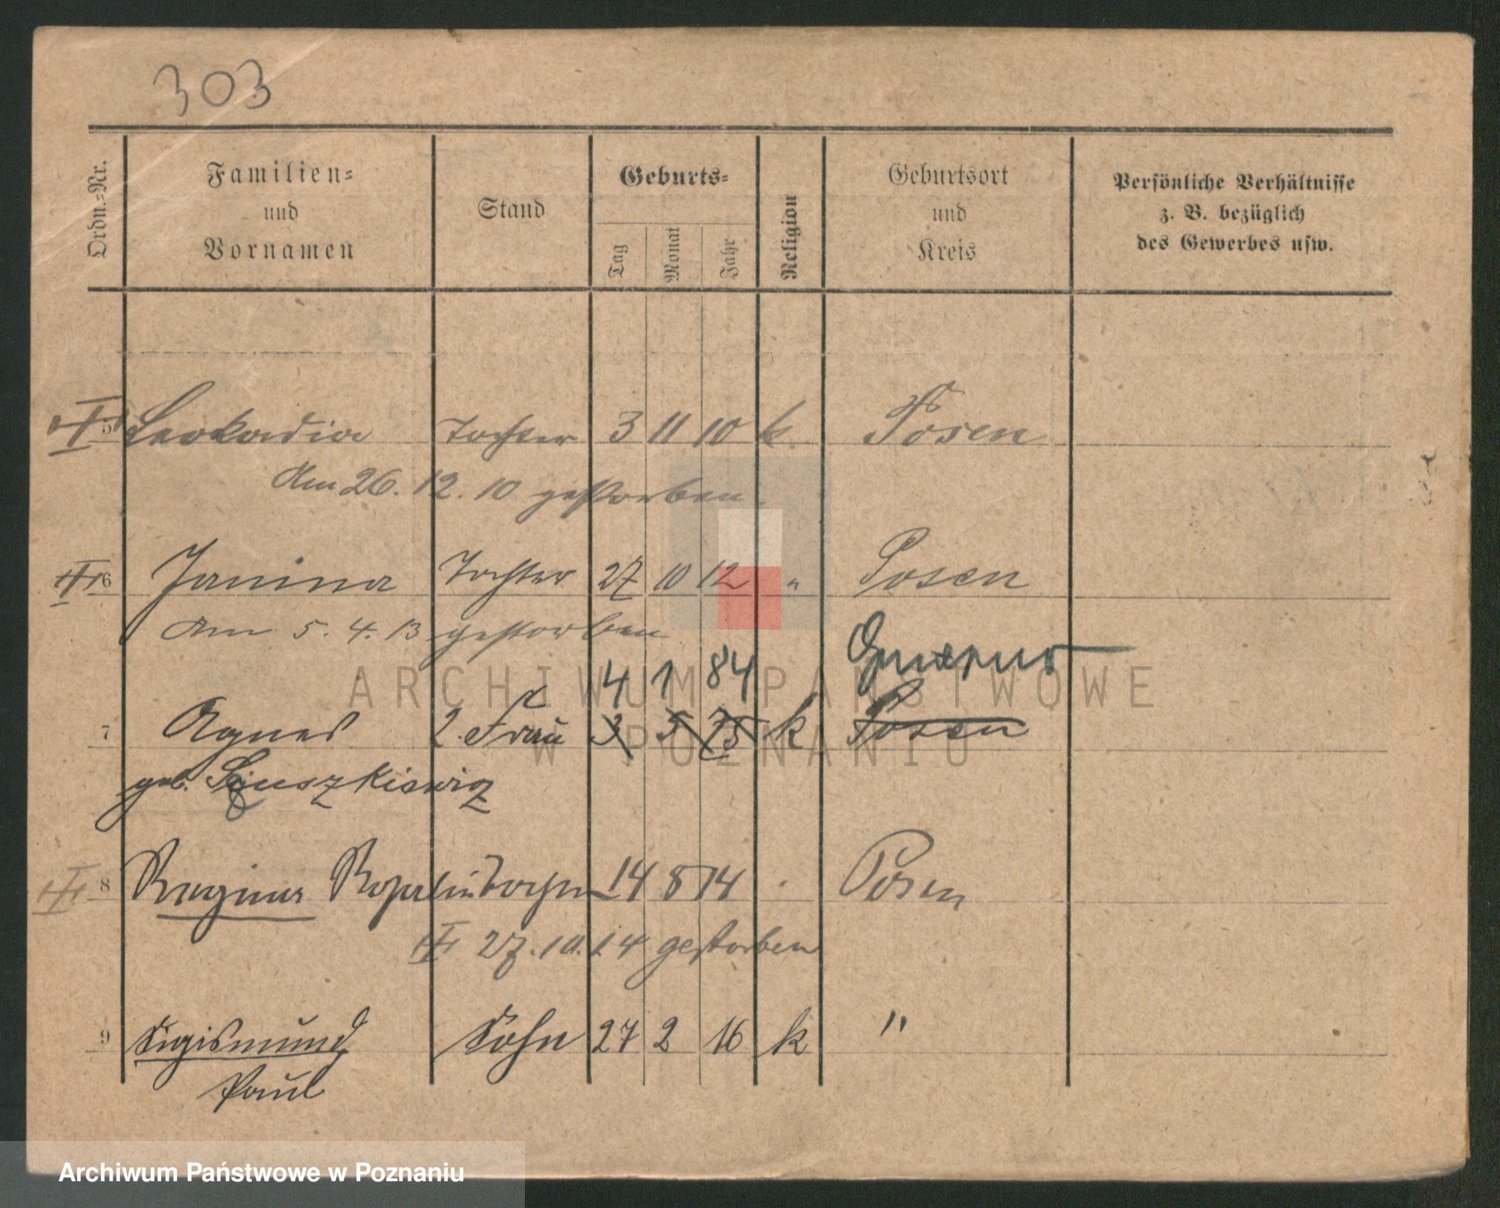 303
Ordn.-Nr.
Familien-
und
Vornamen
Stand
Geburts-
Tag
Monat
Jahr
Religion
Geburtsort
und
Kreis
Persönliche Verhältnisse
z. B. bezüglich
des Gewerbes usw.
5 Leokadia Tochter 3 11 10 k. Posen
Am 26. 12. 10 gestorben.
6 Janina Tochter 27 10 12 " Posen
Am 5. 4. 13 gestorben
4 1 84
ARCHIWUM PAŃSTWOWE
W POZNANIU
7 Agnes 2. Frau 3 5 75 k Posen
geb.
8 Regina Tochter 14 8 14 Posen
27. 10. 14 gestorben
9 Sigismund Sohn 27 2 16 k "
Paul
Archiwum Państwowe w Poznaniu